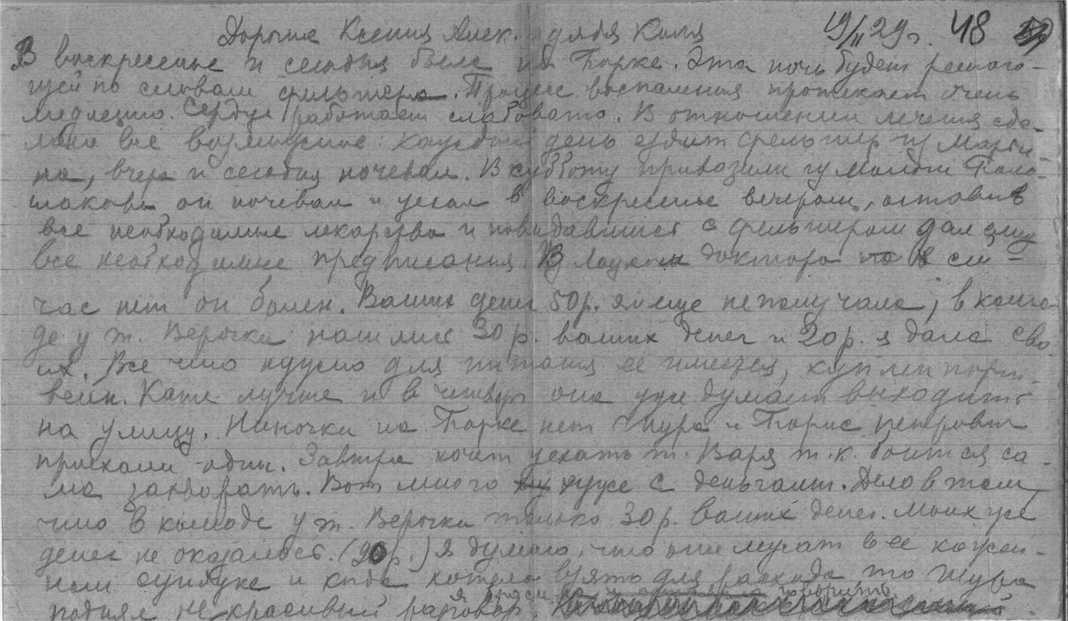 Дорогие Ксения Алек. и дядя Коля 19/II 29г. 48
В воскресенье и сегодня была на Горке. Эта ночь будет решаю-
щей по словам фельшера. Процесс воспаления протекает очень
медленно. Сердце работает слабовато. В отношении лечения сде-
лано все возможное каждый день ездит фельшер из Марьи-
на, вчера и сегодня ночевал. В субботу привозили из Мологи
он ночевал и уехал в воскресенье вечером, оставив
все необходимые лекарства и повидавшись с фельшером дал ему
все необходимые предписания. В доктора сей-
час нет он болен. Ваших денег 50р. я еще не получала, в комо-
де у т. Верочки нашлись 30р. ваших денег и 20р. я дала сво-
их. Все что нужно для питания ее имеется, куплен порт-
вейн. Кате лучше и в четверг она уже думает выходить
на улицу. Ниночки на Горке нет Шура и Борис Петрович
приехали одни. Завтра хочет уехать т. Варя т.к. боится са-
ма захворать. Вот много хуже с деньгами. Дело в том,
что в комоде у т. Верочки только 30р. ваших денег. Моих же
денег не оказалось. (90р.) Я думаю, что они лежат в ее кожен-
ном сундуке и когда хотела взять для расхода то Шура
поднял некрасивый разговор. говорить